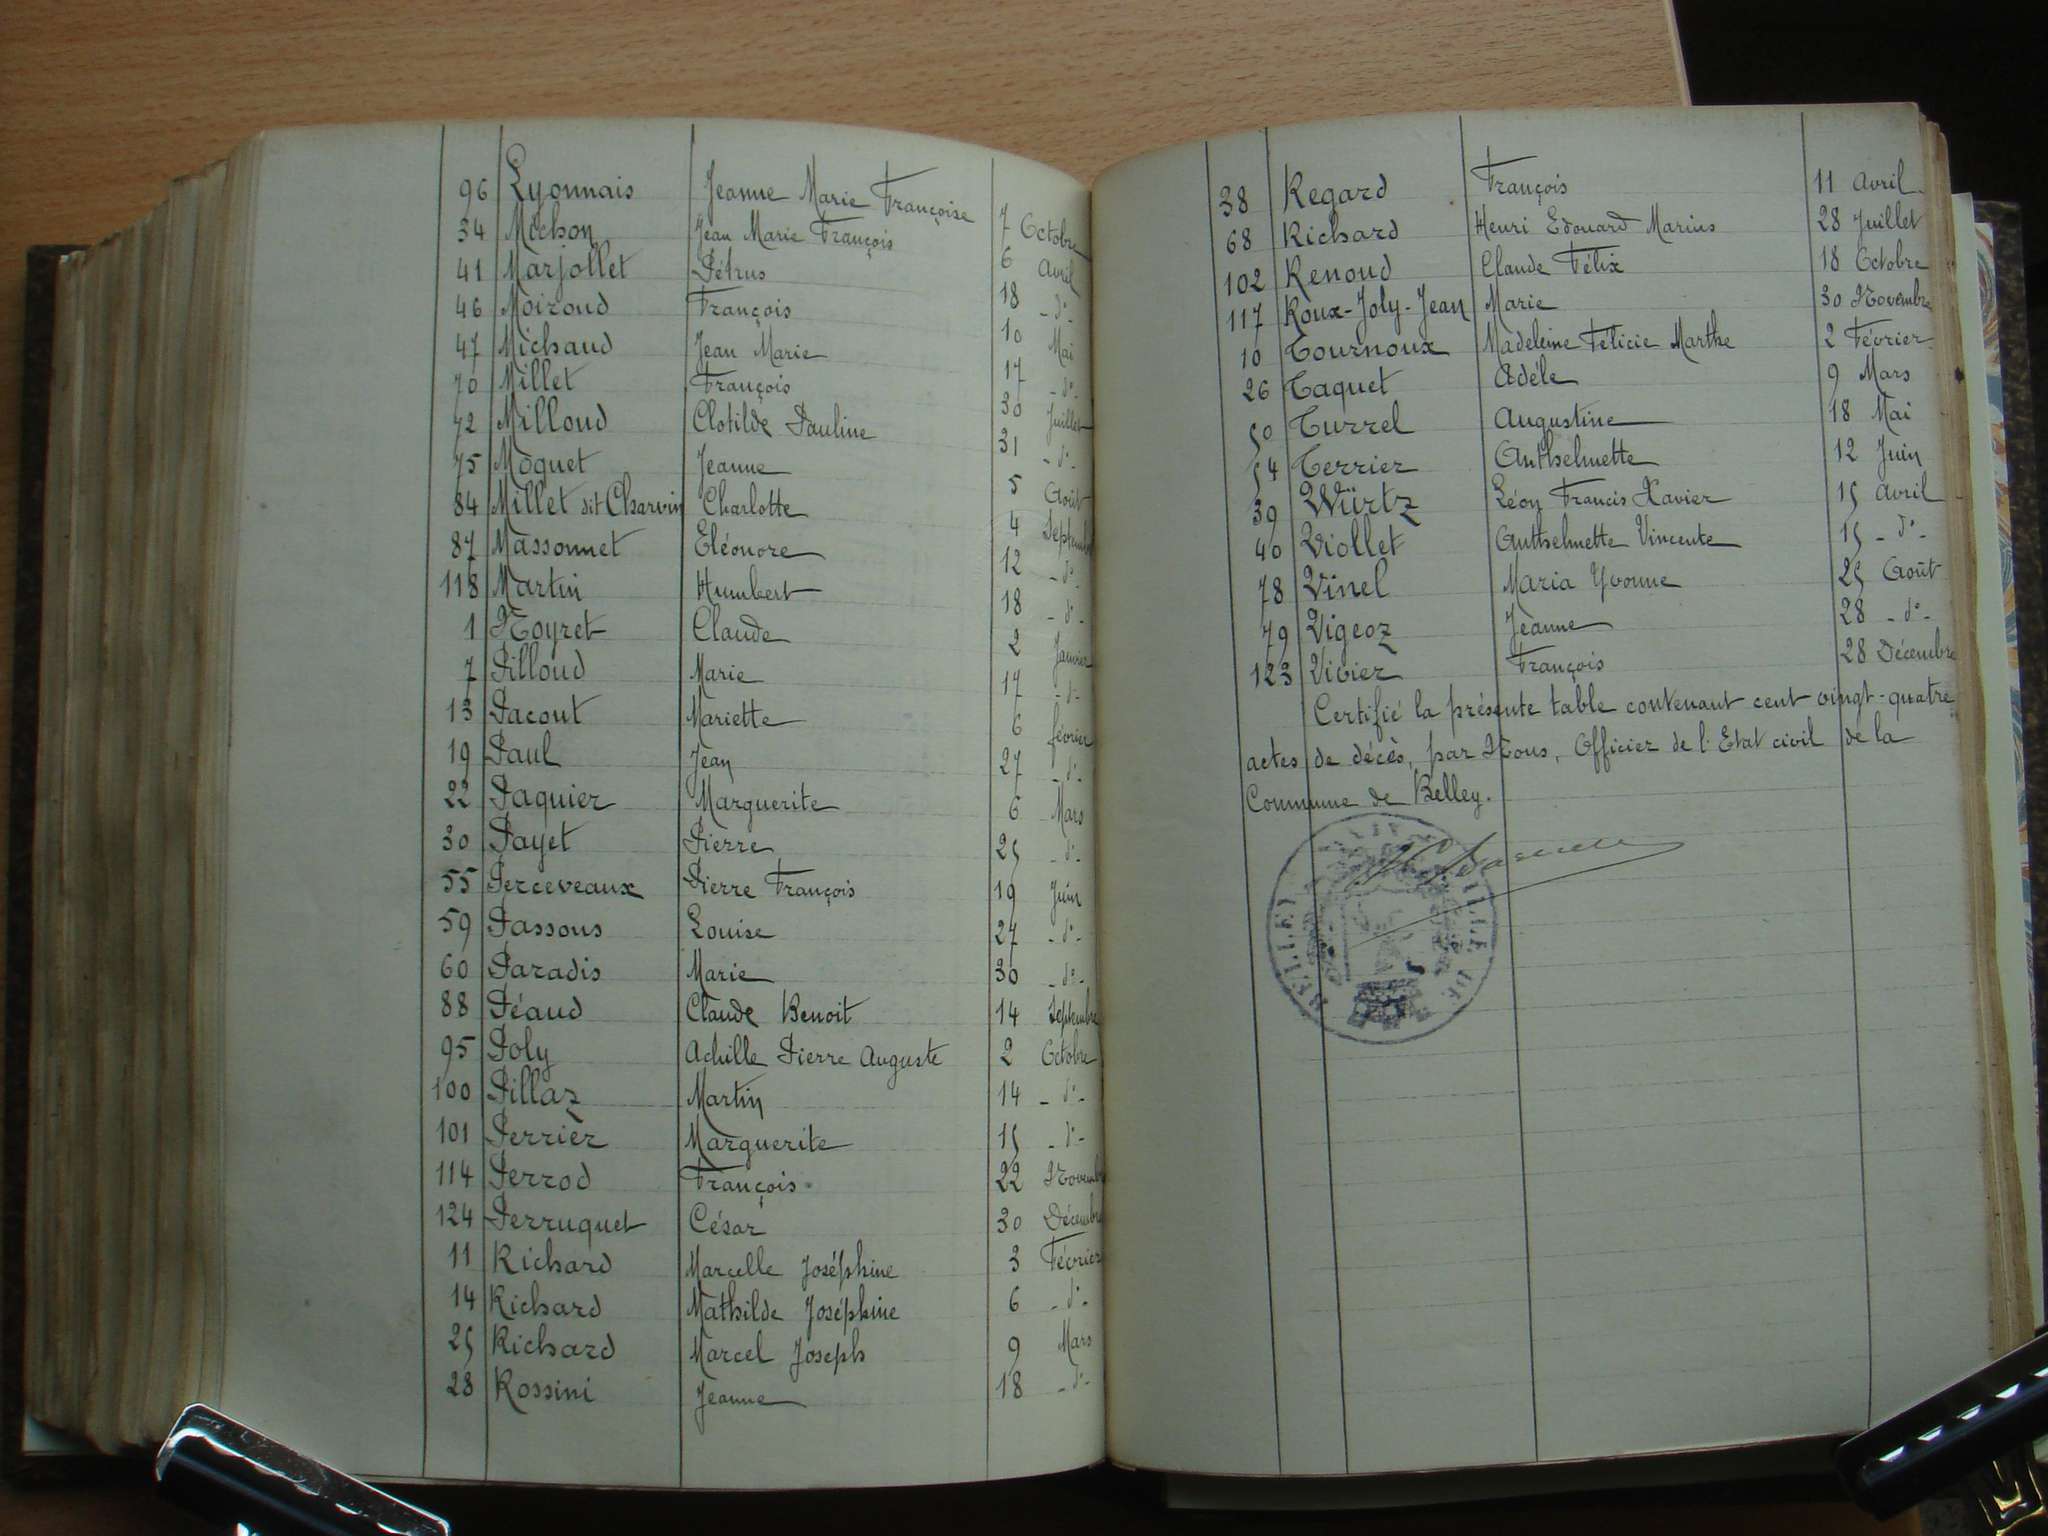 96 Lyonnais Jeanne Marie Françoise 7 Octobre
34 Mochon Jean Marie François 6 Avril
41 Marjollet Pétrus 18 -d°-
46 Moiroud François 10 Mai
47 Michaud Jean Marie 17 -d°-
70 Millet François 30 Juillet
72 Milloud Clotilde Pauline 31 -d°-
75 Moquet Jeanne 5 Août
84 Millet dit Charvin Charlotte 4 Septembre
87 Massonnet Eléonore 12 -d°-
118 Martin Humbert 18 -d°-
1 Noyret Claude 2 Janvier
7 Pilloud Marie 17 -d°-
13 Pacout Mariette 6 février
19 Paul Jean 27 -d°-
22 Paquier Marguerite 6 Mars
30 Payet Pierre 25 -d°-
55 Perceveaux Pierre François 19 Juin
59 Passous Louise 27 -d°-
60 Paradis Marie 30 -d°-
88 Péaud Claude Benoit 14 Septembre
95 Poly Achille Pierre Auguste 2 Octobre
100 Pillaz Martin 14 -d°-
101 Perrier Marguerite 15 -d°-
114 Perrod François 22 Novembre
124 Perruquet César 30 Décembre
11 Richard Marcelle Joséphine 3 Février
14 Richard Mathilde Joséphine 6 -d°-
25 Richard Marcel Joseph 9 Mars
28 Rossini Jeanne 18 -d°-
38 Regard François 11 Avril
68 Richard Henri Edouard Marius 28 Juillet
102 Renoud Claude Félix 18 Octobre
117 Roux-Joly-Jean Marie 30 Novembre
10 Tournoux Madeleine Félicie Marthe 2 Février
26 Taquet Adèle 9 Mars
50 Turrel Augustine 18 Mai
54 Terrier Anthelmette 12 Juin
39 Würtz Léon Francis Xavier 15 Avril
40 Viollet Anthelmette Vincente 15 -d°-
78 Vinel Maria Yvonne 25 Août
79 Vigeoz Jeanne 28 -d°-
123 Vivier François 28 Décembre
Certifié la présente table contenant cent vingt-quatre
actes de décès, par Nous, Officier de l'Etat civil de la
Commune de Belley.
VILLE DE BELLEY